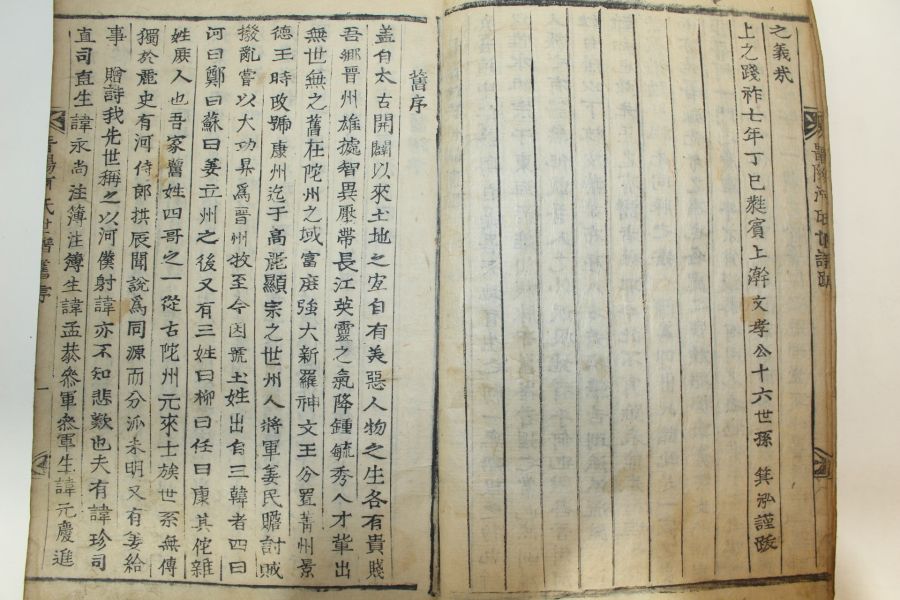 之義哉
上之踐祚七年丁巳蕤賓上澣文孝公十六世孫 箕泓謹跋
舊序
盖自太古開闢以來土地之宜自有美惡人物之生各有貴賤
吾鄉晋州雄據智異壓帶長江英靈之氣降鍾毓秀人才輩出
無世無之舊在陀州之域富庶強大新羅神文王分置菁州景
德王時改號康州迄于高麗顯宗之世州人將軍姜民贍討賊
撥亂嘗以大功昇爲晋州牧至今因號土姓出自三韓者四曰
河曰鄭曰蘇曰姜立州之後又有三姓曰柳曰任曰康其佗雜
姓族人也吾家舊姓四哥之一從古陀州元來士族世系無傳
獨於麗史有河侍郎拱辰聞說爲同源而分派未明又有姜給
事 贈詩我先世稱之以河僕射諱亦不知悲歎也夫有諱珍司
直司直生諱永尚注簿注簿生諱孟恭叅軍叅軍生諱元慶進
晋陽河氏世譜舊序
一